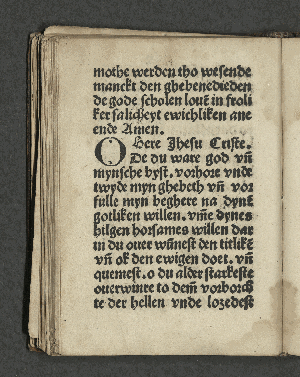 mothe werden tho wesende
manckt den ghebenedieden
de gode scholen louē in froli
ker salicheyt ewichliken ane
ende Amen.
O Here Jhesu Criste.
De du ware god vñ
mynsche byst. vorhore vnde
twyde myn ghebeth vñ vor
fulle myn beghere na dynē
gotliken willen. vm̄e dynes
hilgen horsames willen dar
in du ouer wūnest den titlikē
vñ ok den ewigen doet. vñ
quemest. o du alder starkeste
ouerwinre to dem̄ vorborch
te der hellen vnde lozedest